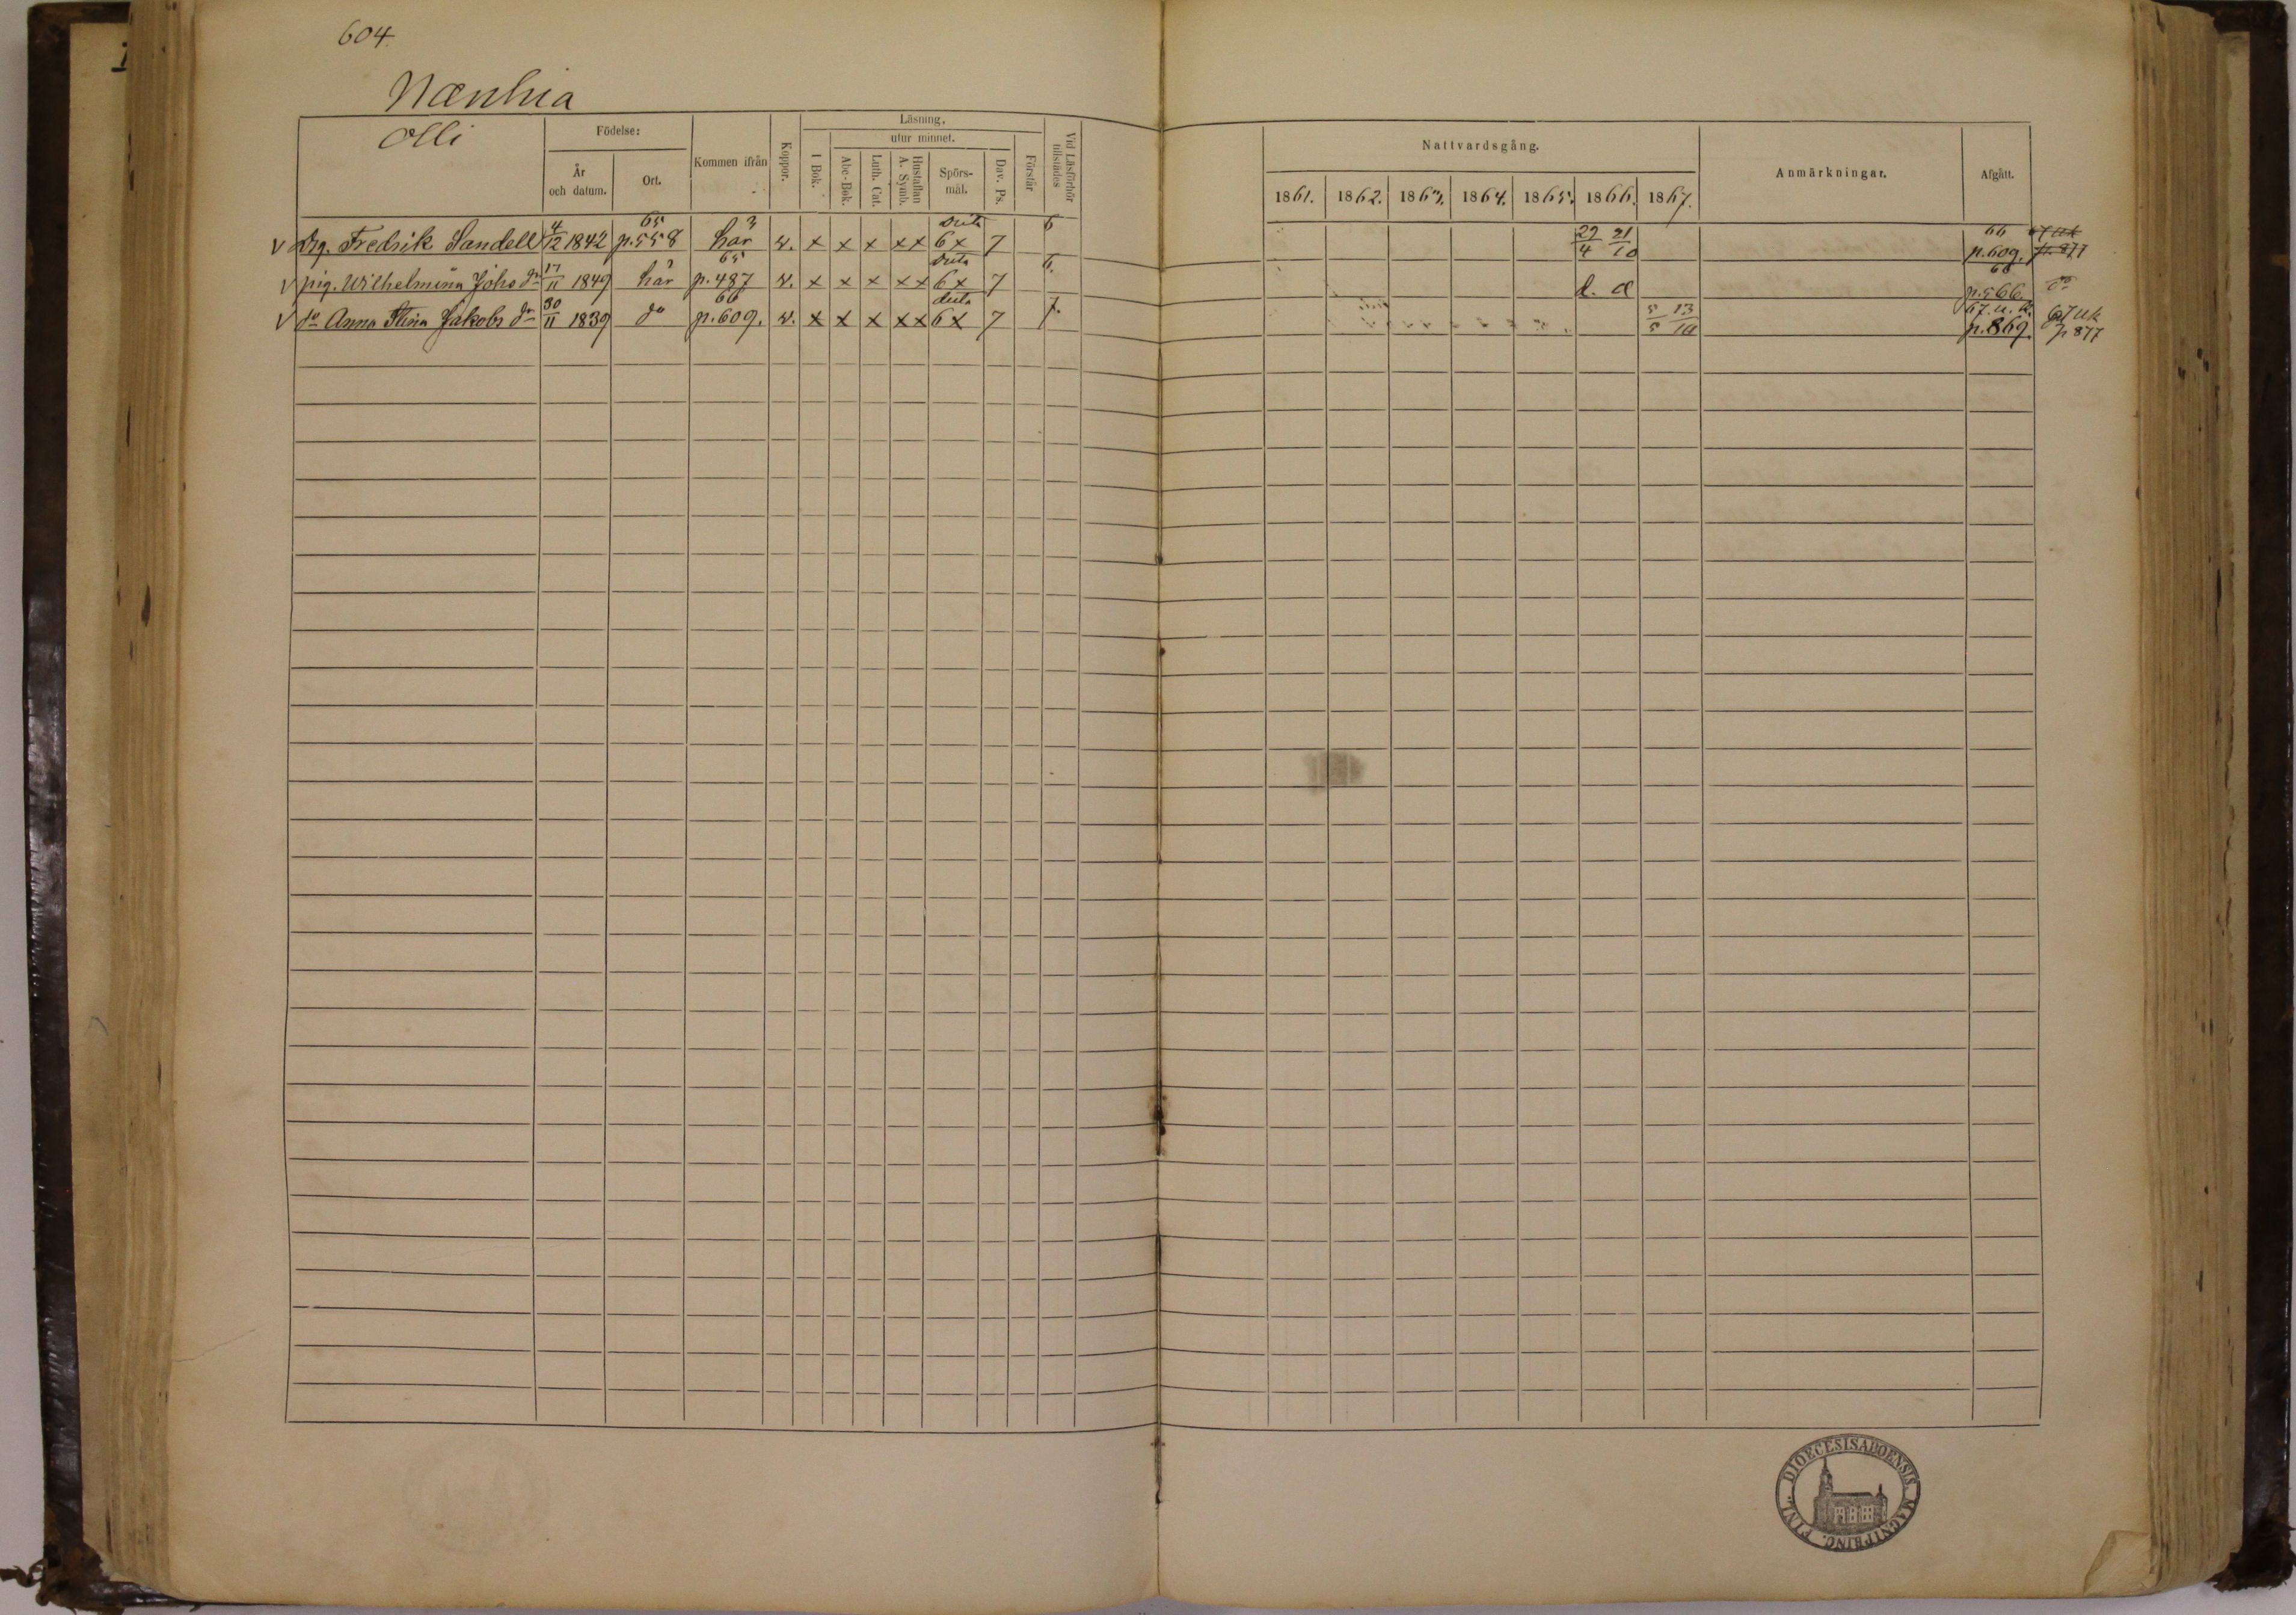 604.
Nænhia
Olli
Födelse:
År och datum.
Ort.
Kommen ifrån
Koppor.
Läsning,
I Bok.
utur minnet.
Abc-Bok.
Luth. Cat.
Hustaflan A. Symb.
Spörs-mål.
Dav. Ps.
Förstår
Vid Läsförhör tillstädes
Nattvardsgång.
1861. 1862. 1863. 1864. 1865. 1866. 1867.
Anmärkningar.
Afgått.
v Drg. Fredrik Sandell 4/12 1842 65 p. 558 här v. x x x x x 6 x 7 6 29/4 21/10 66 p. 609. 67 UK p. 877
v pig. Wilhelmina Johs dr 17/11 1849 här 65 p. 487 v. x x x x x 6 x 7 6. d. d 66 p. 566. do
v do Anna Stina Jakobs dr 30/11 1839 do 66 p. 609. v. x x x x x 6 x 7 7. 5/5 13/10 67. u. k. p. 869. 67 UK p 877
DIOECESIS ABOENSIS MAGNI PRINC. FINL.